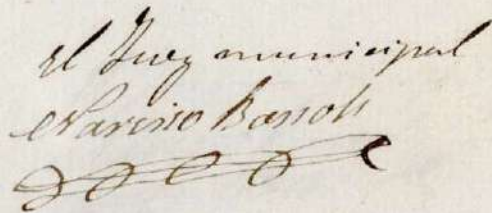 el Juez municipal
Narciso Bassols